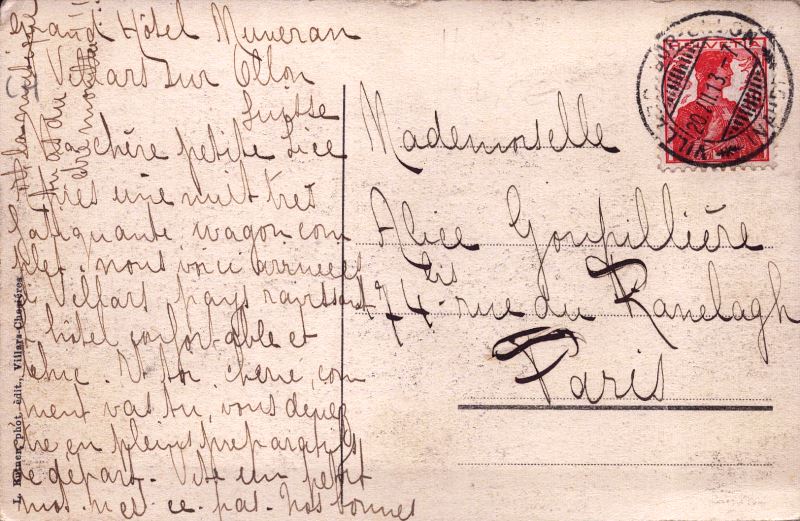 Grand Hôtel Muveran
Villars sur Ollon
Suisse
chère petite Lice
Après une nuit très
fatiguante, wagon com
plet. nous voici arrivées
à Villars pays ravissant
hôtel confortable et
Et toi, chérie, com
ment vas tu, vous devez
être en pleins préparatifs
de départ. Vite un petit
mot. n'est ce pas. Nos bonnes
Mademoiselle
Alice Goupillière
174 bis rue du Ranelagh
Paris
HELVETIA
20.VII.13.-7
L. Kirner, phot. édit., Villars-Chesières